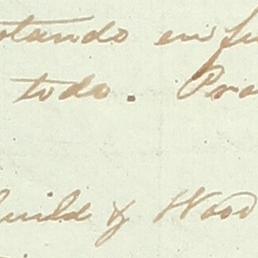 otando en fu
todo. Pra
build & Wood